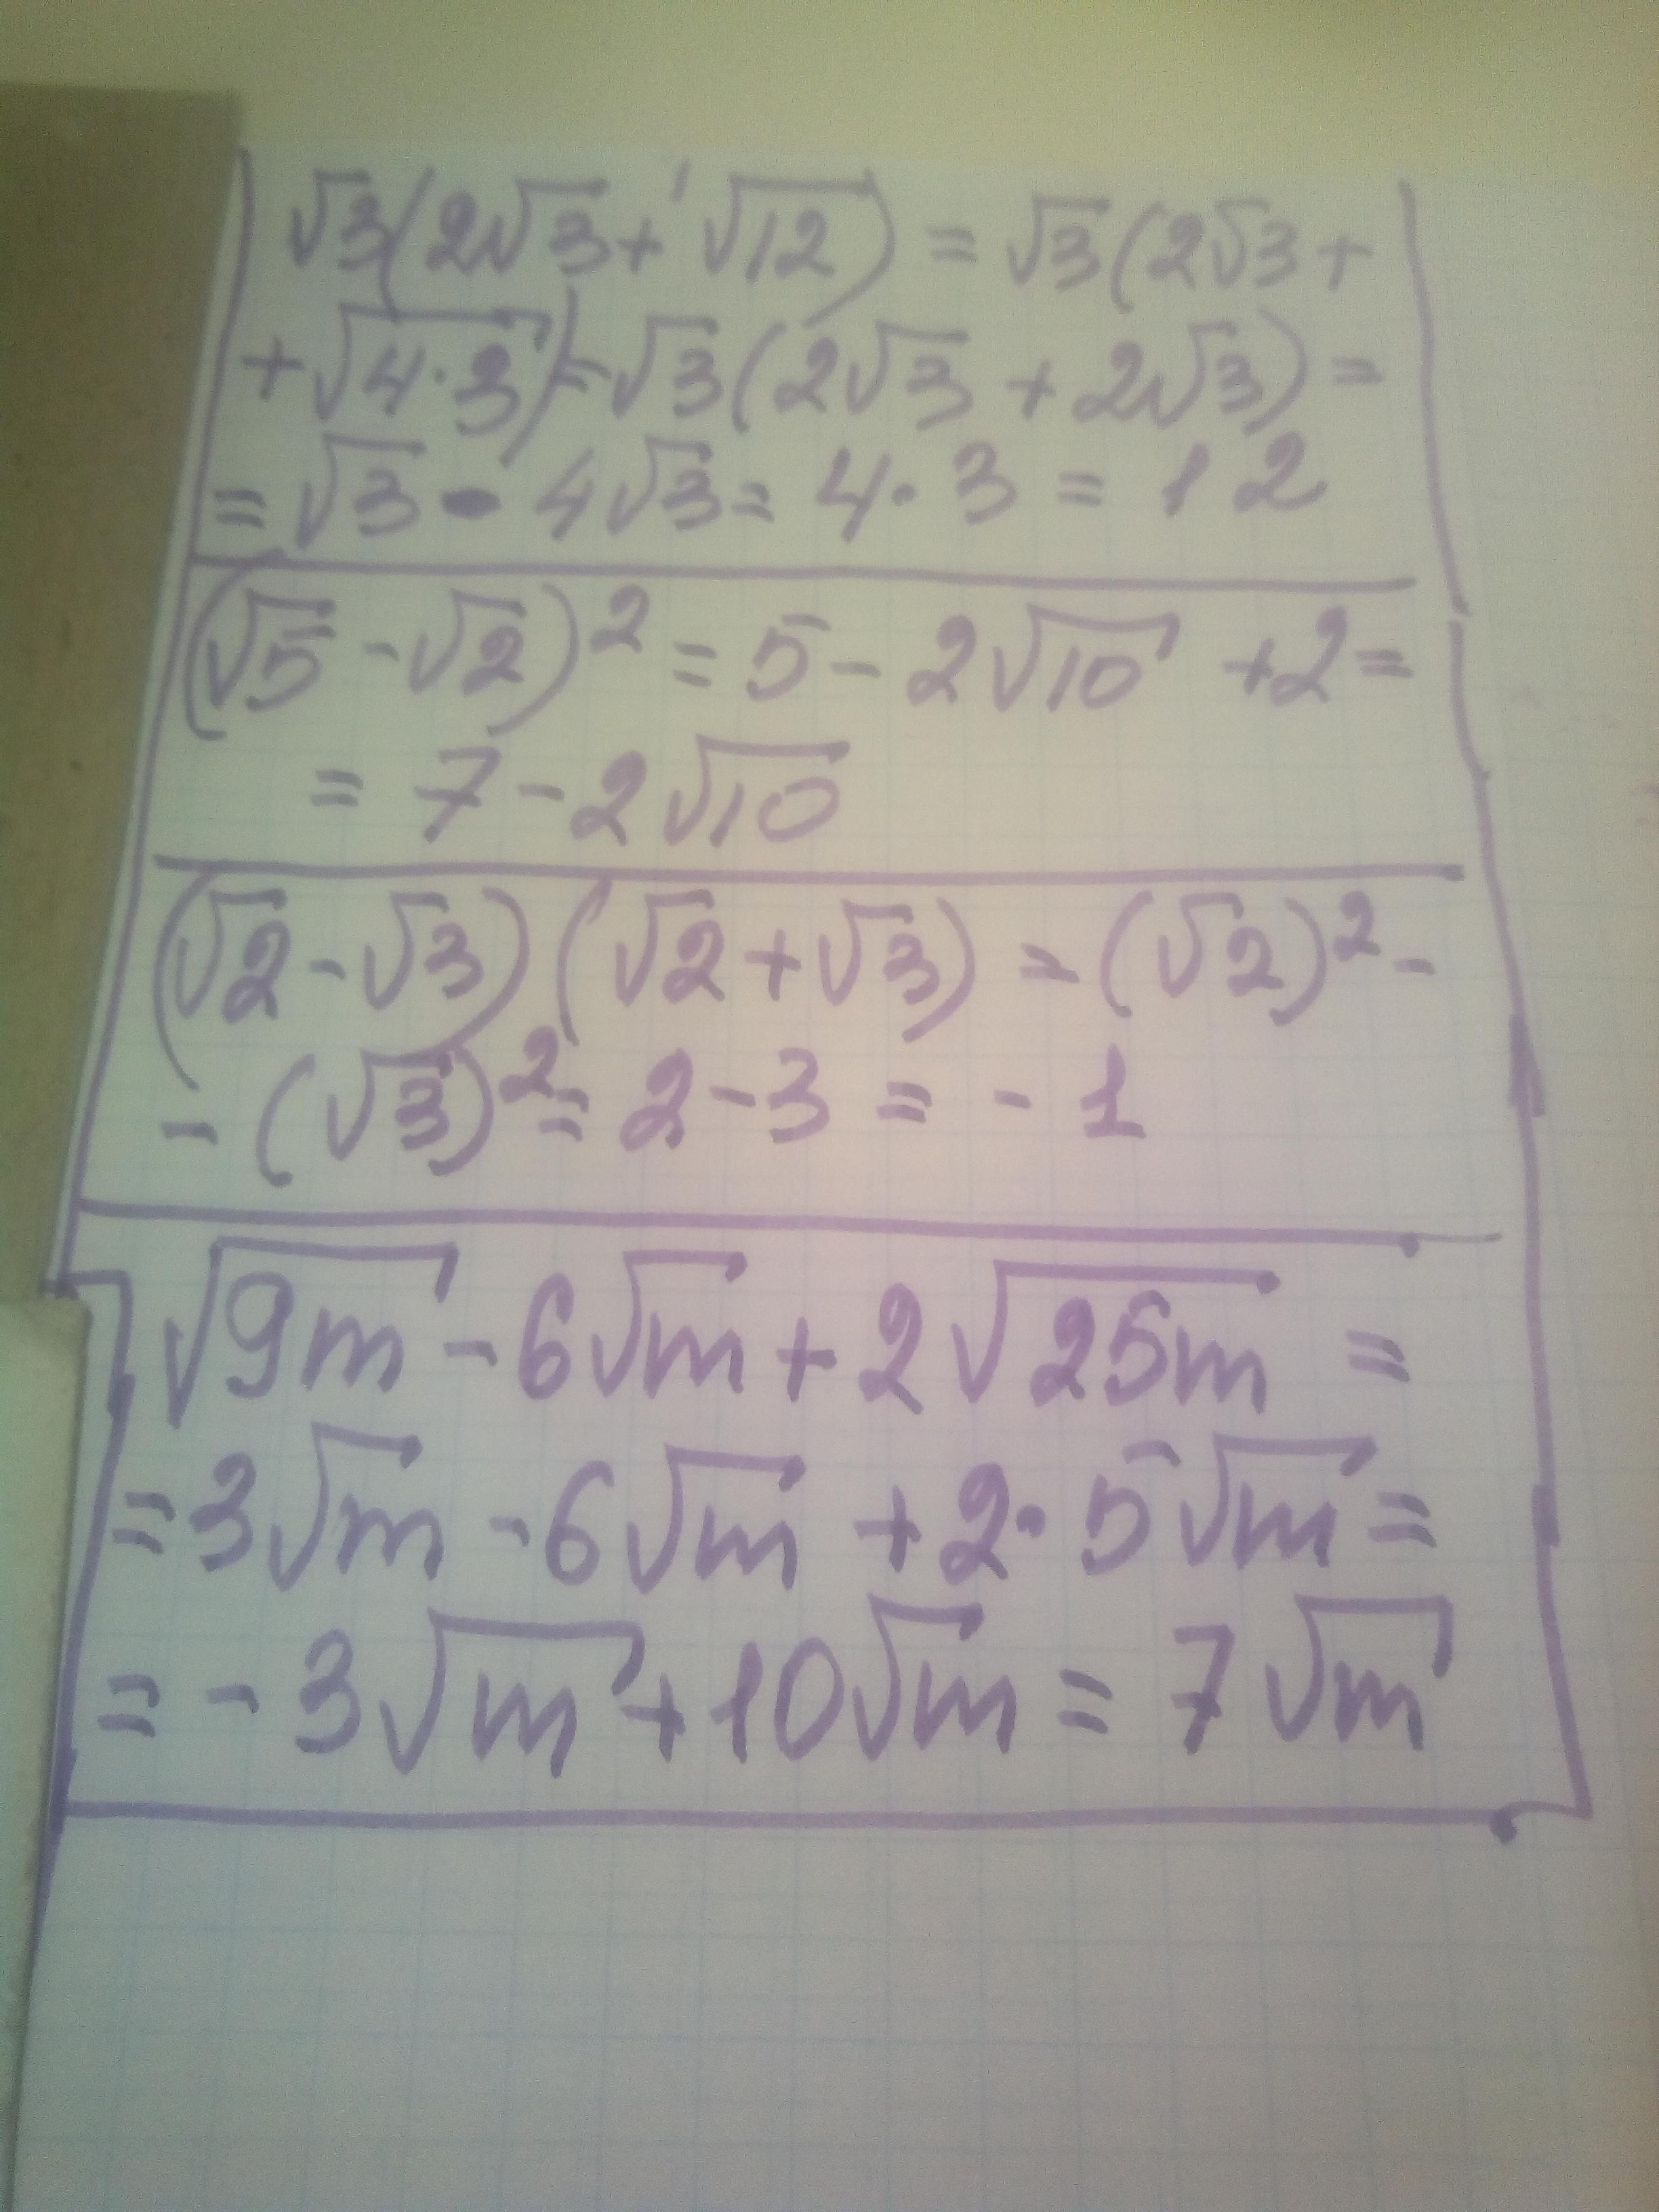 √3(2√3+√12) = √3(2√3+
+√4·3)=√3(2√3+2√3)=
=√3 · 4√3 = 4·3 = 12
(√5-√2)² = 5-2√10+2=
= 7-2√10
(√2-√3)(√2+√3) = (√2)²-
-(√3)² = 2-3 = -1
√9m-6√m+2√25m =
=3√m-6√m+2·5√m=
=-3√m+10√m=7√m